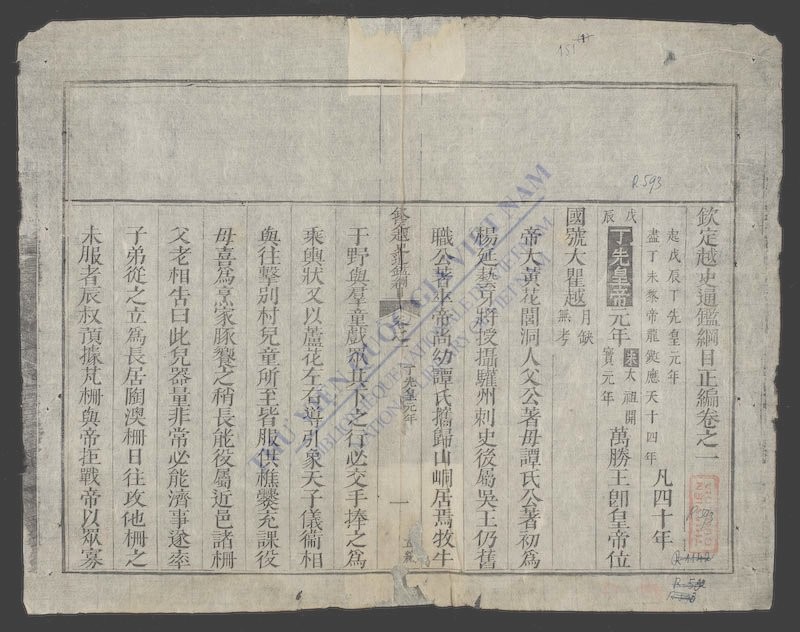 欽定越史通鑑綱目正編卷之一
起戊辰丁先皇元年
盡丁未黎帝龍鋌應天十四年
凡四十年
戊辰
丁先皇帝元年
宋太祖開寶元年
萬勝王卽皇帝位
國號大瞿越
月缺無考
帝大黃花閭洞人父公著母譚氏公著初爲
楊廷藝牙將授攝驩州刺史後屬吳王仍舊
職公著卒帝尚幼譚氏攜歸山峒居焉牧牛
欽定越史通鑑綱目
丁先皇元年
一
于野與羣童戲於其下之行必交手捧之爲
乘輿狀又以蘆花左右導引象天子儀衞相
與往擊別村兒童所至皆服供樵爨充課役
母喜爲烹家豚饗之稍長能役屬近邑諸柵
父老相告曰此兒器量非常必能濟事遂率
子弟從之立爲長居陶澳柵日往攻他柵之
未服者辰叔預據芃柵與帝拒戰帝以眾寡
THU VIEN QUOC GIA VIET NAM
BIBLIOTHEQUE NATIONALE DU VIETNAM
NATIONAL LIBRARY OF VIETNAM
R.593